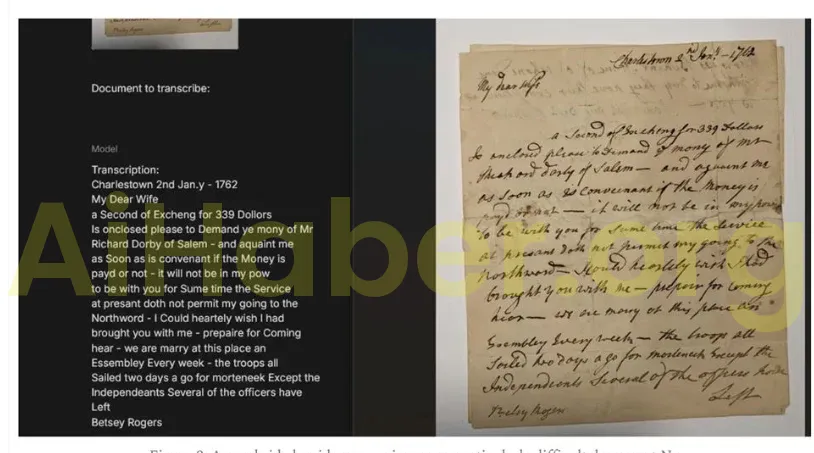 Document to transcribe:
Model
Transcription:
Charlestown 2nd Jan.y - 1762
My Dear Wife
a Second of Excheng for 339 Dollors
Is onclosed please to Demand ye mony of Mr
Richard Dorby of Salem - and aquaint me
as Soon as is convenant if the Money is
payd or not - it will not be in my pow
to be with you for Sume time the Service
at presant doth not permit my going to the
Northword - I Could heartely wish I had
brought you with me - prepaire for Coming
hear - we are marry at this place an
Essembley Every week - the troops all
Sailed two days a go for morteneek Except the
Independeants Several of the officers have
Left
Betsey Rogers
Charlestown 2nd Jany - 1762
My Dear Wife
a Second of Excheng for 339 Dollors
Is onclosed please to Demand ye mony of Mr
Richard Dorby of Salem - and aquaint me
as Soon as is convenant if the Money is
payd or not - it will not be in my pow
to be with you for Sume time the Service
at presant doth not permit my going to the
Northword - I Could heartely wish I had
brought you with me - prepair for coming
hear - we are marry at this place an
Essembley Every week - the troops all
Sailed two days a go for morteneek Except the
Independents Several of the officers have
Left
Betsey Rogers
AiHaberleg